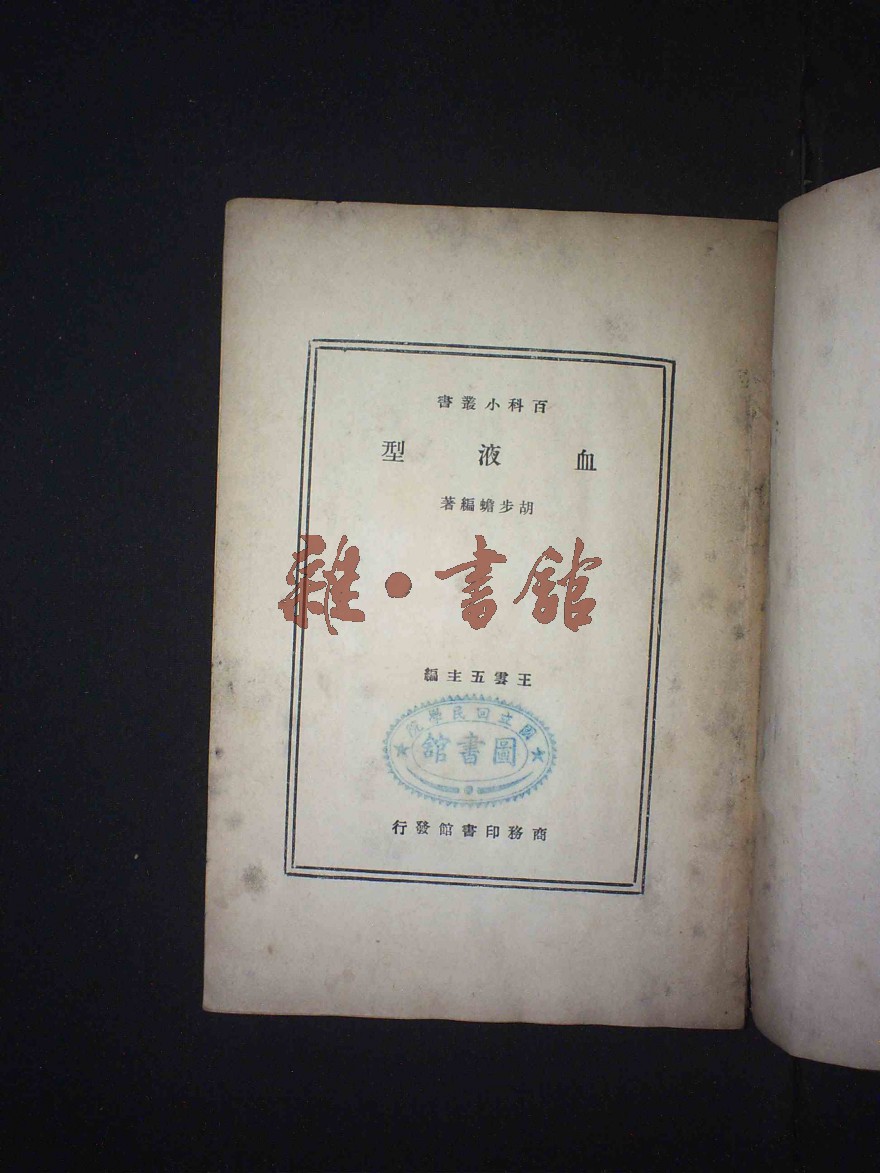 百科小叢書
血液型
胡步蟾編著
雜·書館
王雲五主編
國立回民學院
圖書館
商務印書館發行